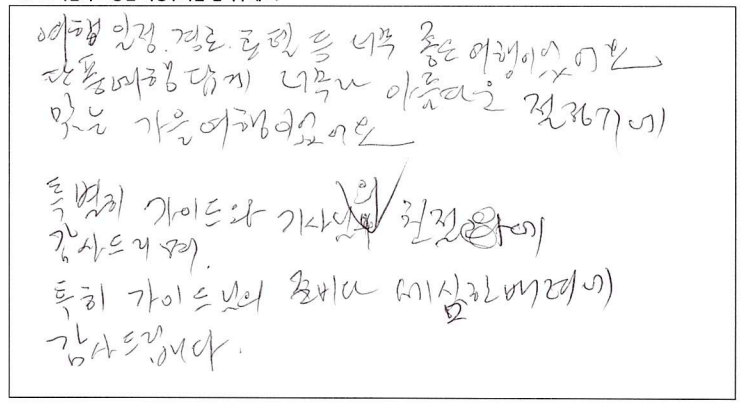 여행 일정. 경로. 호텔 등 너무 좋은 여행이었어요
단풍여행답게 너무나 아름다운 절정기에
맞는 가을여행이었어요
특별히 가이드와 기사님의 친절함에
감사드리며.
특히 가이드님의 준비나 세심한 배려에
감사드립니다.